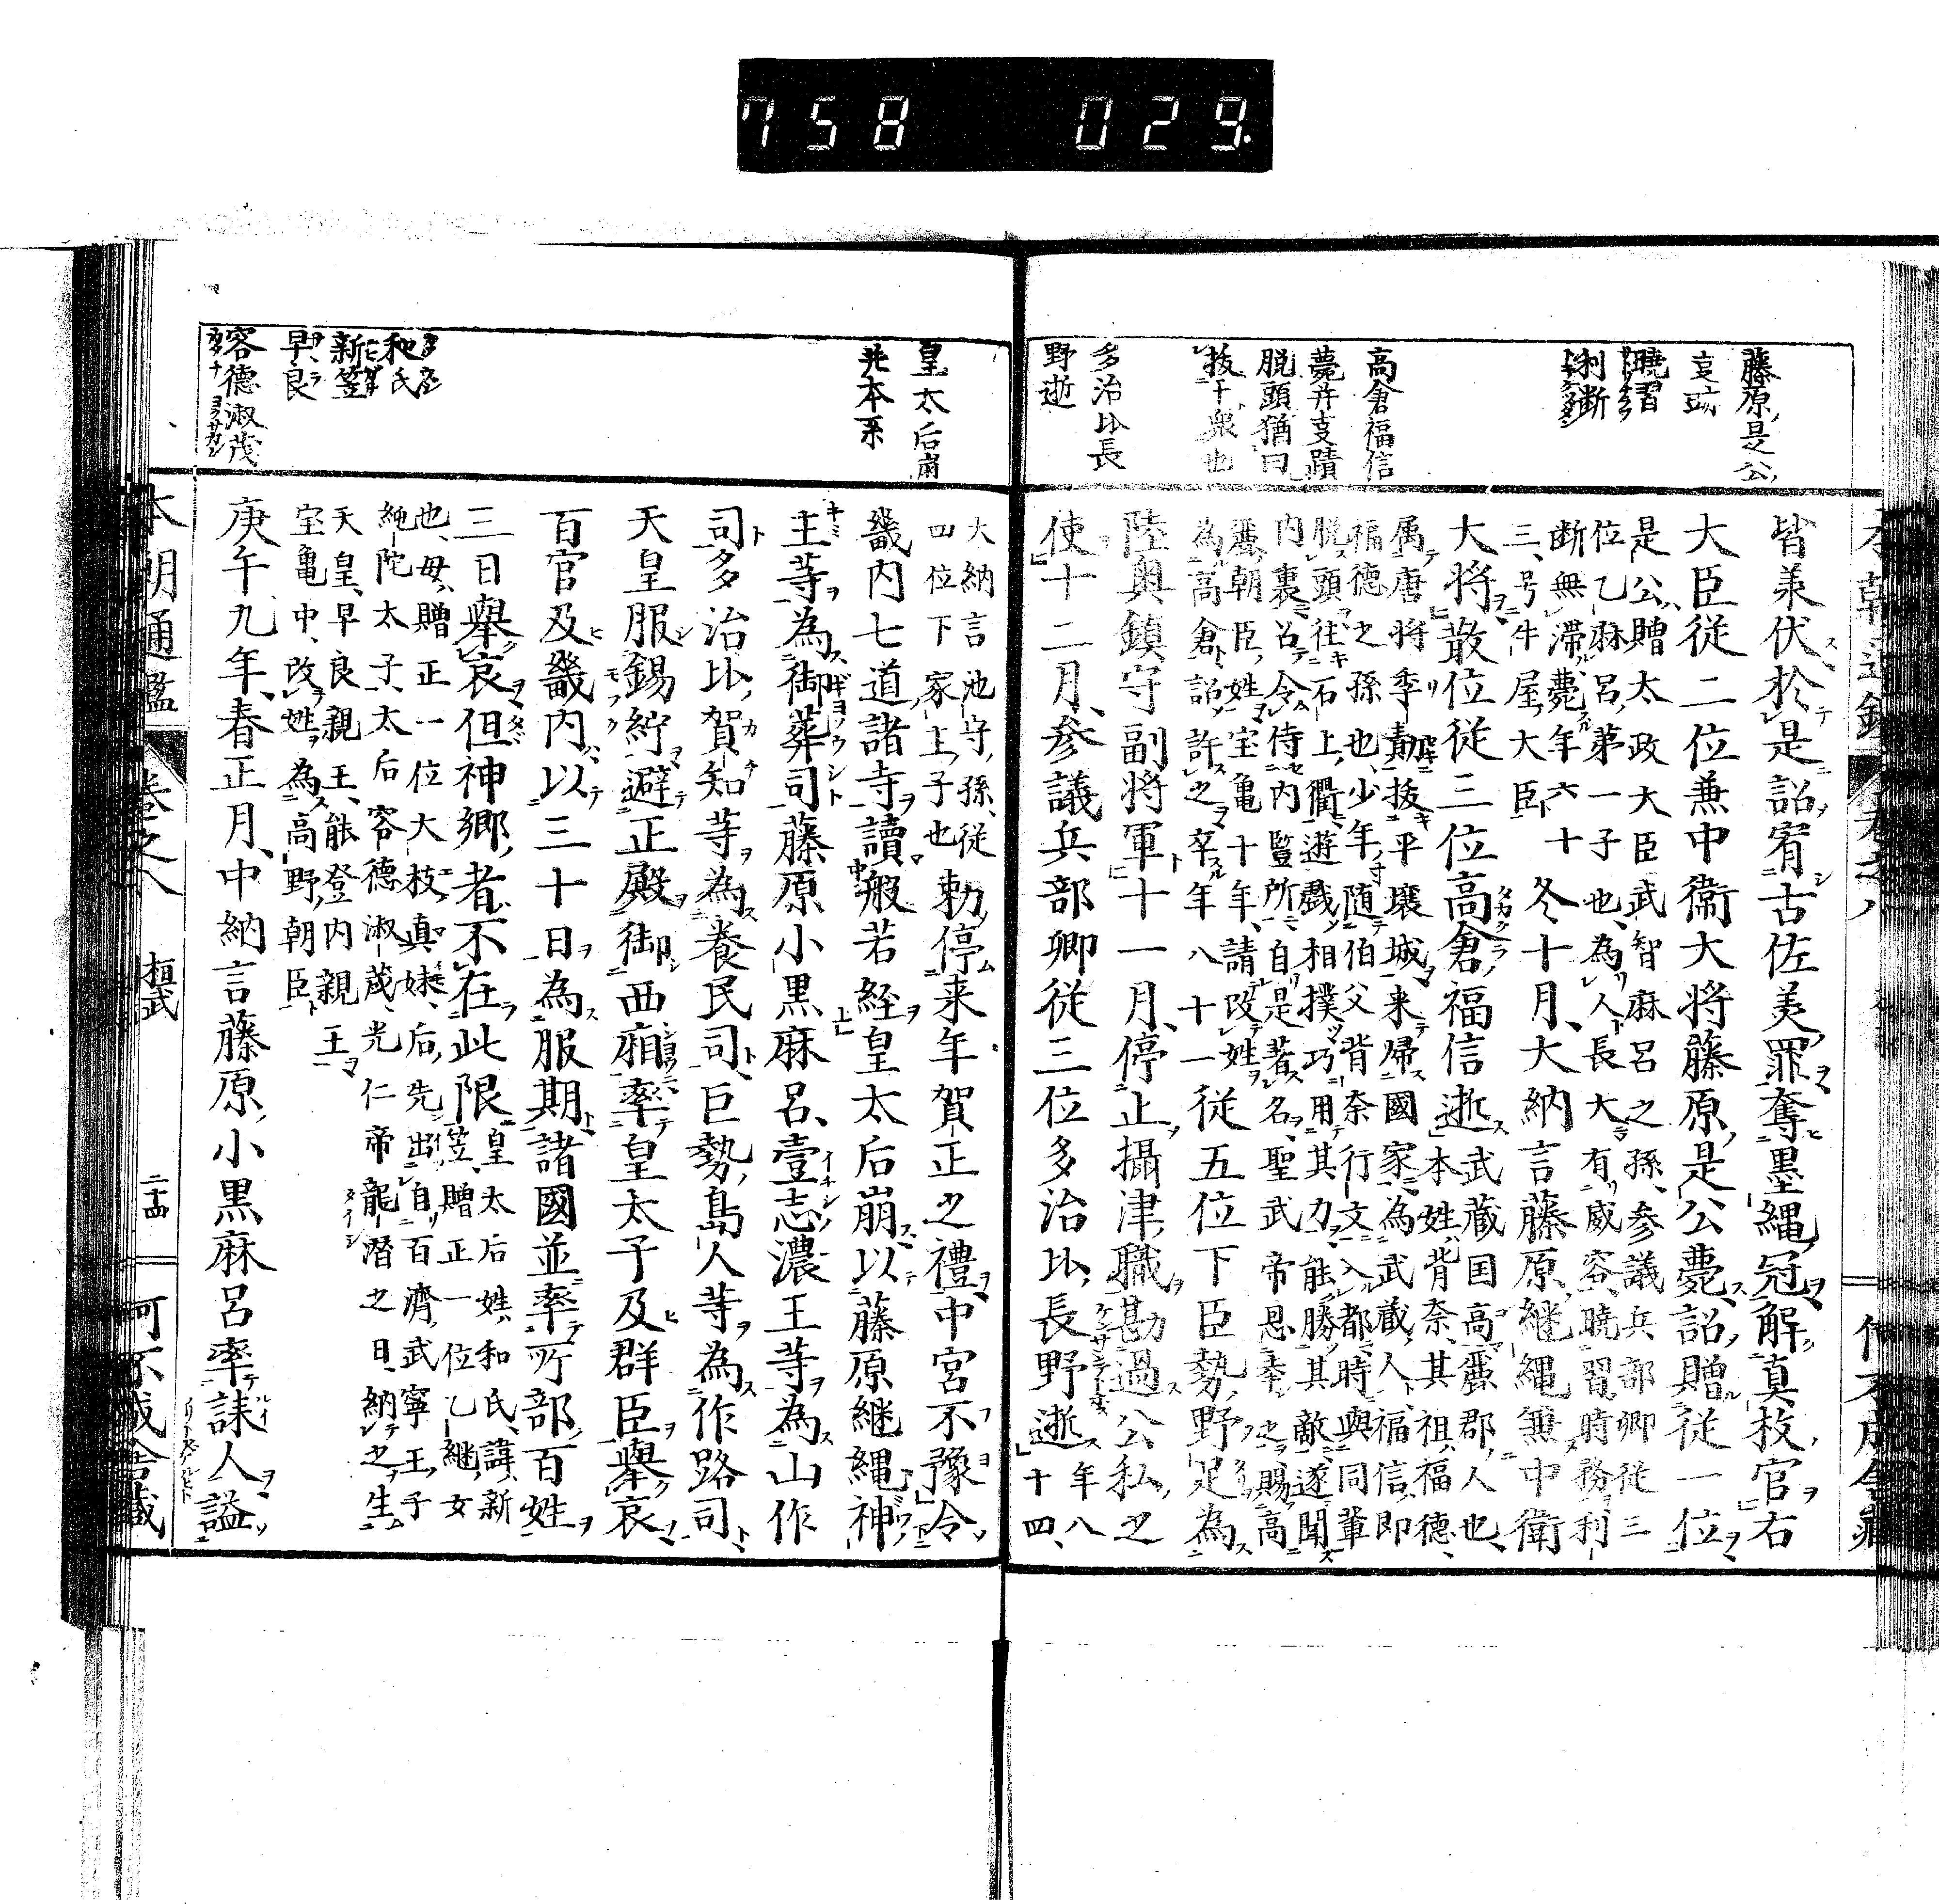 758 029.
藤原是公
薨
曉習
利断
高倉福信
薨并支蹟
脱頭猶曰
抜干衆也
多治比長
野逝
皆義伏於是詔宥古佐美罪奪墨縄冠解真枚官右
大臣従二位兼中衛大将藤原是公薨詔贈従一位
是公贈太政大臣武智麻呂之孫参議兵部卿従三
位乙麻呂第一子也為人長大有威容曉習時務利
断無滞薨年六十
三号牛屋大臣
冬十月大納言藤原継縄兼中衛
大将散位従三位高倉福信逝
武蔵国高麗郡人也
本姓背奈其祖福徳
属唐将李勣抜平壌城来帰國家為武蔵人福信即
福徳之孫也少年随伯父背奈行文入都時與同輩
脱頭往石上衢遊戯相撲巧用其力能勝其敵遂聞
内裏召令侍内豎所自是著名聖武帝恩奉之賜高
麗朝臣姓宝亀十年請改姓
為高倉詔許之卒年八十一
従五位下臣勢野足為
陸奥鎮守副将軍十一月停止攝津職勘過公私之
使十二月参議兵部卿従三位多治比長野逝
年八
十四
皇太后崩
并本系
和氏
新笠
早良
容德淑茂
大納言池守孫従
四位下家主子也
勅停来年賀正之禮中宮不豫令
畿内七道諸寺讀般若経皇太后崩以藤原継縄神
王等為御葬司藤原小黒麻呂壹志濃王等為山作
司多治比賀知等為養民司巨勢島人等為作路司
天皇服錫紵避正殿御西廂率皇太子及群臣擧哀
百官及畿内以三十日為服期諸國並率所部百姓
三日擧哀但神郷者不在此限
皇太后姓和氏諱新
笠贈正一位乙継女
也母贈正一位大枝真妹后先出自百濟武寧王子
純陀太子太后容德淑茂光仁帝龍潜之日納之生
天皇早良親王能登内親王
宝亀中改姓為高野朝臣
庚午九年春正月中納言藤原小黒麻呂率誄人謚
本朝通鑑 巻之八 桓武 二十四